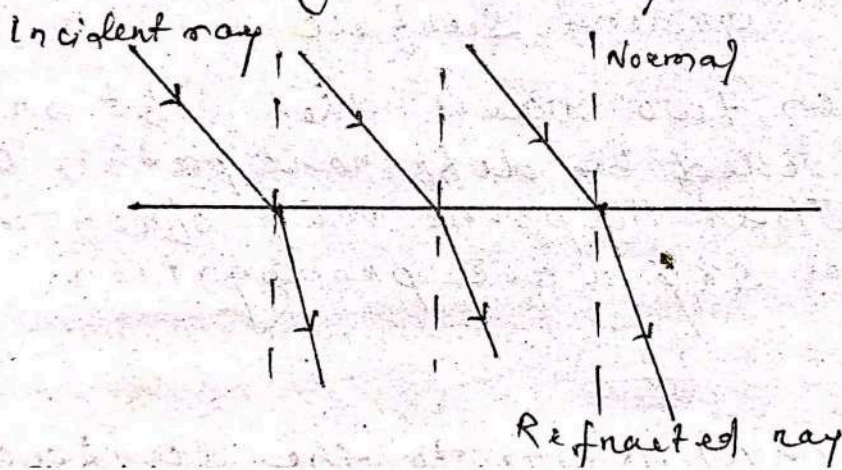 Incident ray
Normal
Refracted ray